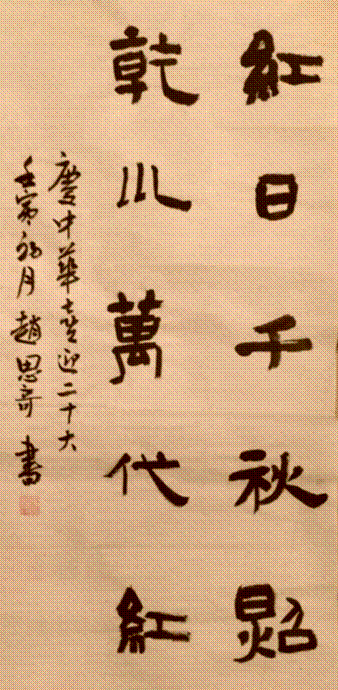 紅日千秋照
乾川萬代紅
慶中華喜迎二十大
壬寅月趙思奇書